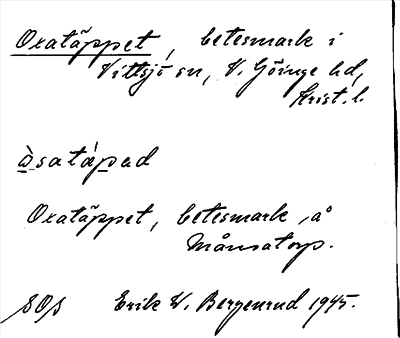 Oxatäppet, betesmark i
Vittsjö sn, V. Göinge hd,
Krist. l.
àsatápad
Oxatäppet, betesmark, å
Månsatorp.
SOS Erik W. Bergenrud 1945.